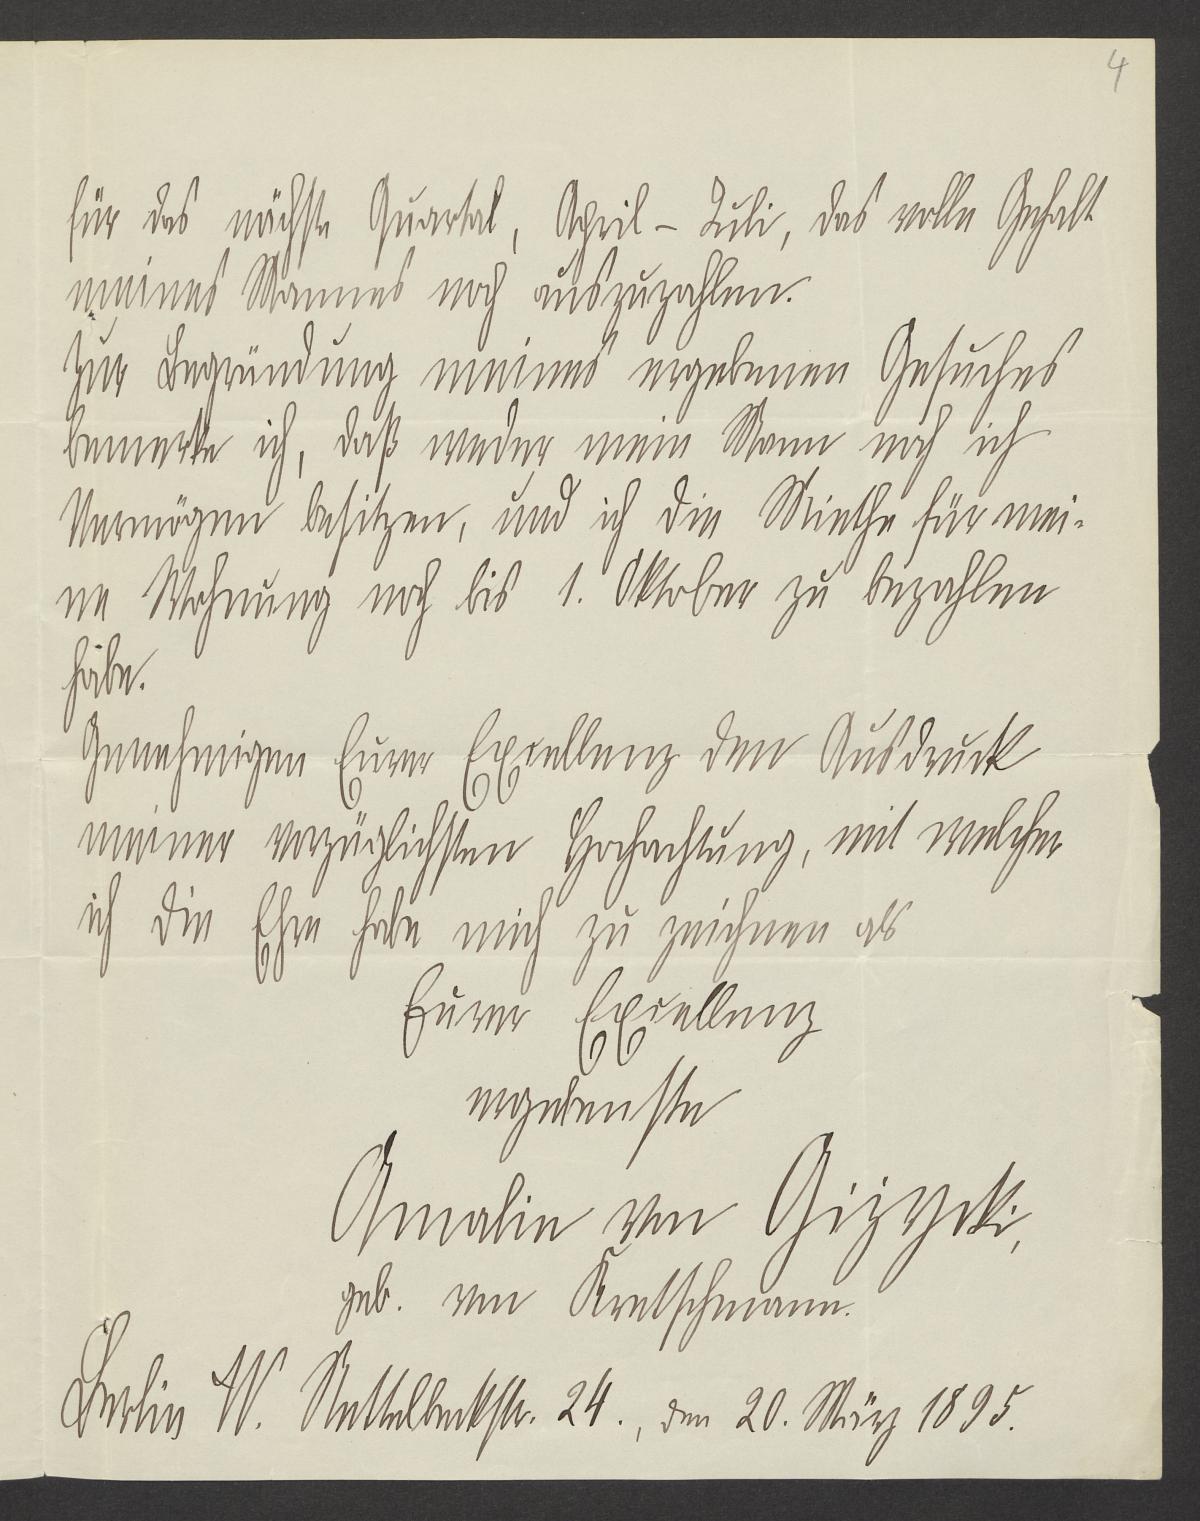 4
für das nächste Quartal, April – Juli, das volle Gehalt
meines Mannes noch auszuzahlen.
Zur Begründung meines ergebenen Gesuches
bemerke ich, daß weder mein Mann noch ich
Vermögen besitzen, und ich die Miethe für mei-
ne Wohnung noch bis 1. Oktober zu bezahlen
habe.
Genehmigen Eurer Excellenz den Ausdruck
meiner vorzüglichsten Hochachtung, mit welcher
ich die Ehre habe mich zu zeichnen als
Eurer Excellenz
ergebenste
Amalie von Gizycki,
geb. von Kretschmann.
Berlin W. Nettelbeckstr. 24., den 20. März 1895.